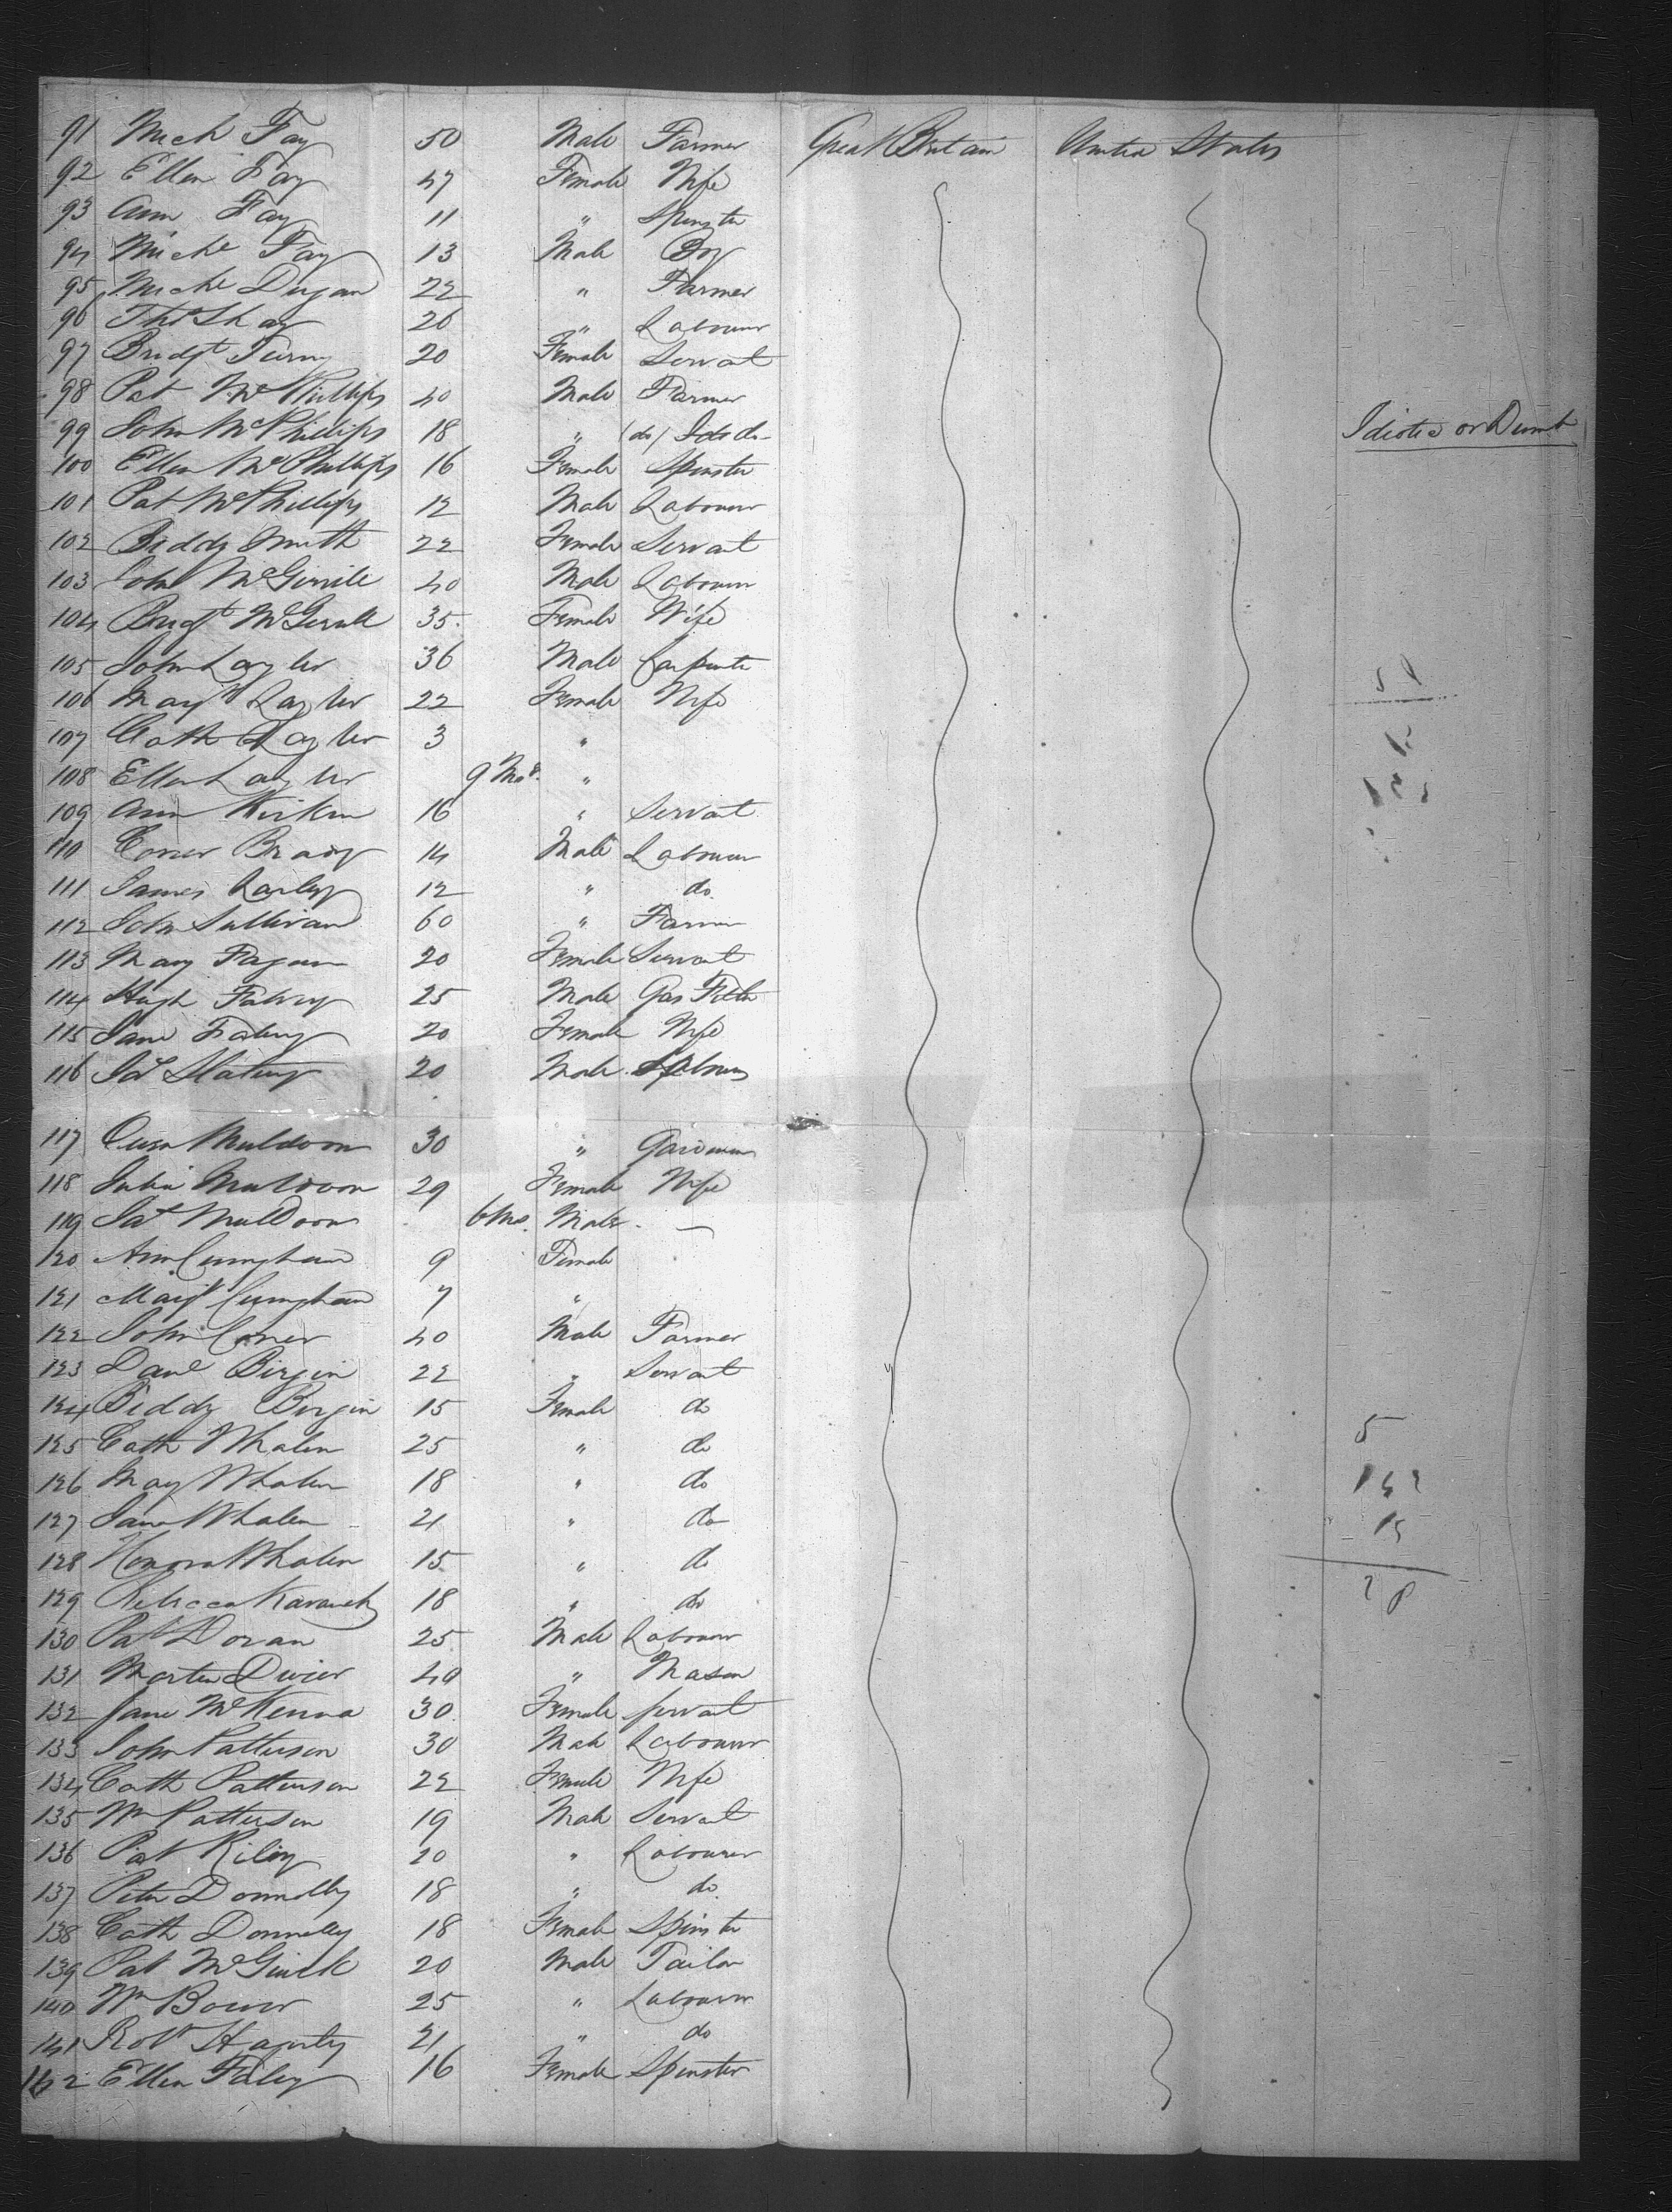 91 Mich Fay 50 Male Farmer Great Britain United States
92 Ellen Fay 47 Female Wife
93 Ann Fay 11 " Spinster
94 Miche Fay 13 Male Boy
95 Miche Dugan 22 " Farmer
96 Thos Shay 26 " Labourer
97 Bridgt 20 Female Servat
98 Pat McPhillips 40 Male Farmer
99 John McPhillips 18 " (do) do Idiotic or Dumb
100 Ellen McPhillips 16 Female Spinster
101 Pat McPhillips 12 Male Labourer
102 Biddy Smith 22 Female Servant
103 John 40 Male Labourer
104 Bridgt 35 Female Wife
105 John Lawler 36 Male Carpenter
106 Margt Lawler 22 Female Wife
107 Cath Lawler 3 "
108 Ellen Lawler 9 Mos. "
109 Ann 16 " Servant
110 Coner Brady 14 Male Labourer
111 James 12 " do
112 John Sullivan 60 " Farmer
113 Mary Fagan 20 Female Servant
114 Hugh 25 Male Gas Fitter
115 Jane 20 Female Wife
116 Jas Slatery 20 Male
117 Muldoon 30 " Gardener
118 Muldoon 29 Female Wife
119 Jas Muldoon 6 Mos. Male —
120 Ann Cuningham 9 Female
121 Margt Cuningham 7 "
122 John Coner 40 Male Farmer
123 Danl Birgin 22 " Servant
124 Biddy Birgin 15 Female do
125 Cath Whalen 25 " do
126 May Whalen 18 " do
127 Jane Whalen 21 " do
128 Honora Whalen 15 " do
129 Rebecca Kavanah 18 " do
130 Pat Doran 25 Male Labourer
131 Marten Dwier 40 " Mason
132 Jane McKenna 30 Female Servant
133 John Patterson 30 Male Labourer
134 Cath Patterson 22 Female Wife
135 Wm Patterson 19 Male Servant
136 Pat Riley 20 " Labourer
137 Peter Donnolly 18 " do
138 Cath Donnolly 18 Female Spinster
139 Pat 20 Male Tailor
140 Wm Bower 25 " Labourer
141 Robt Hagerty 21 " do
142 Ellen Faley 16 Female Spinster